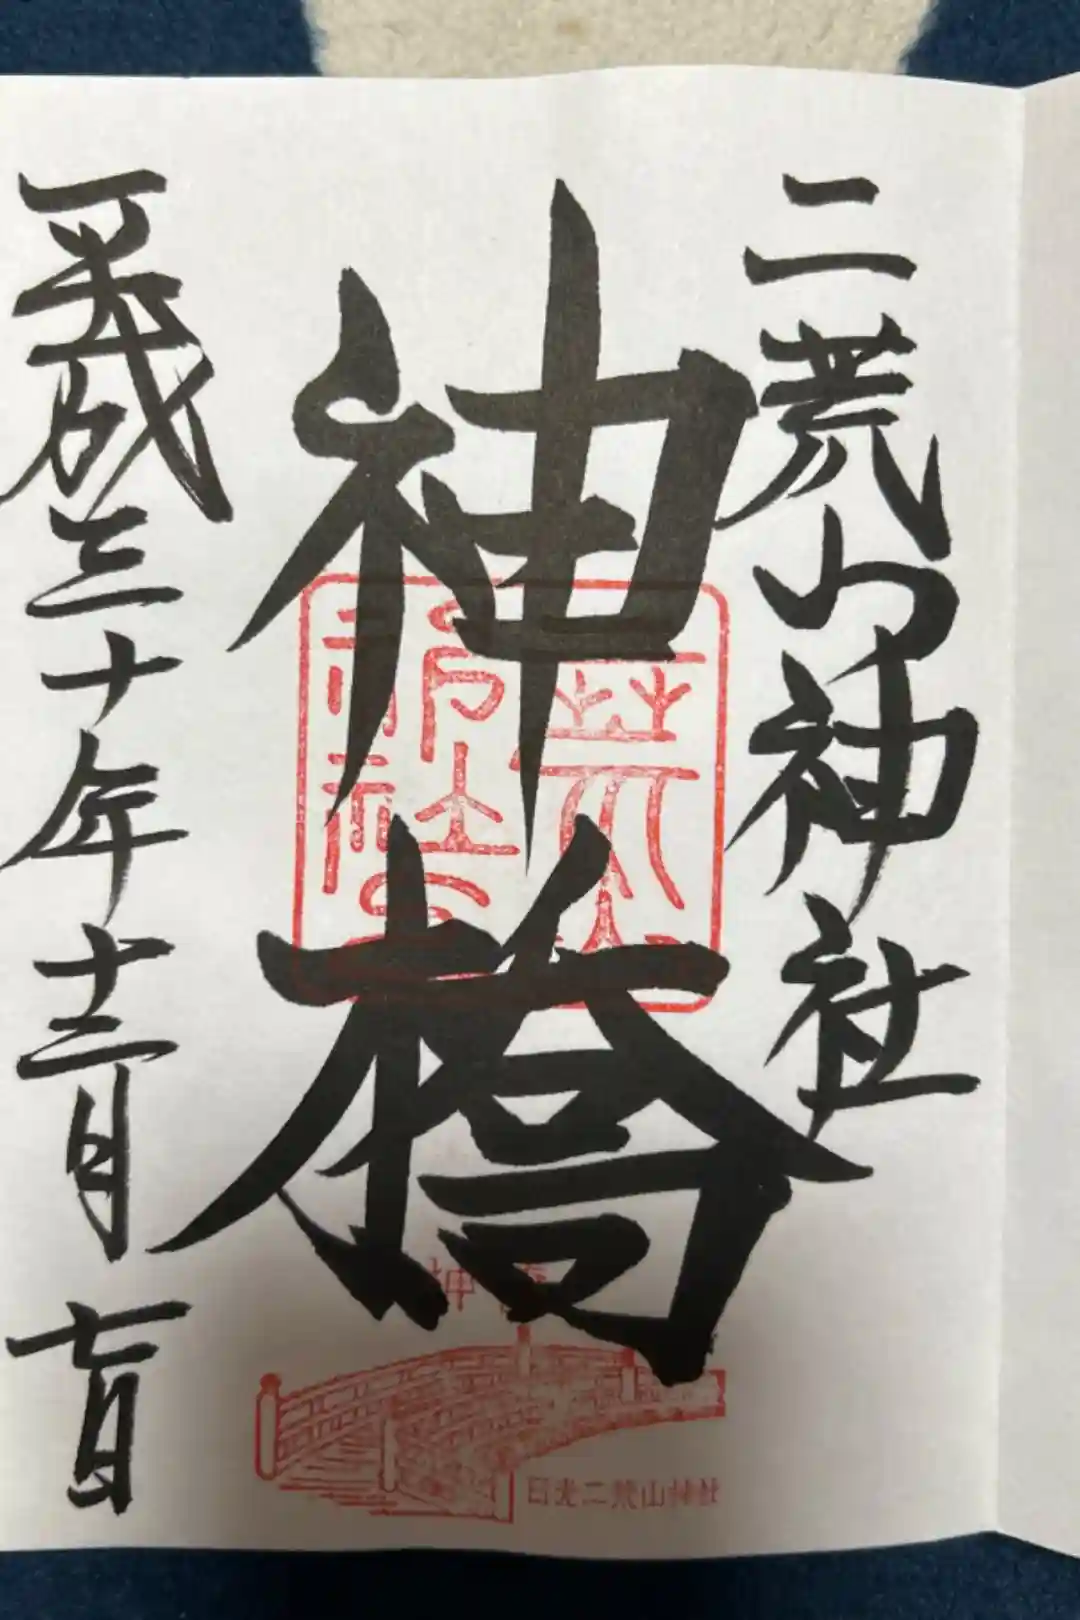 二荒山神社
神橋
平成三十年十二月七日
神橋
日光二荒山神社